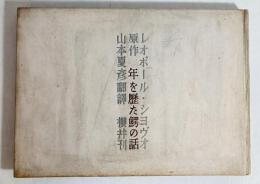 レオポール・シヨヴオ
原作 年を歴た鰐の話
山本夏彦翻譯 櫻井刊